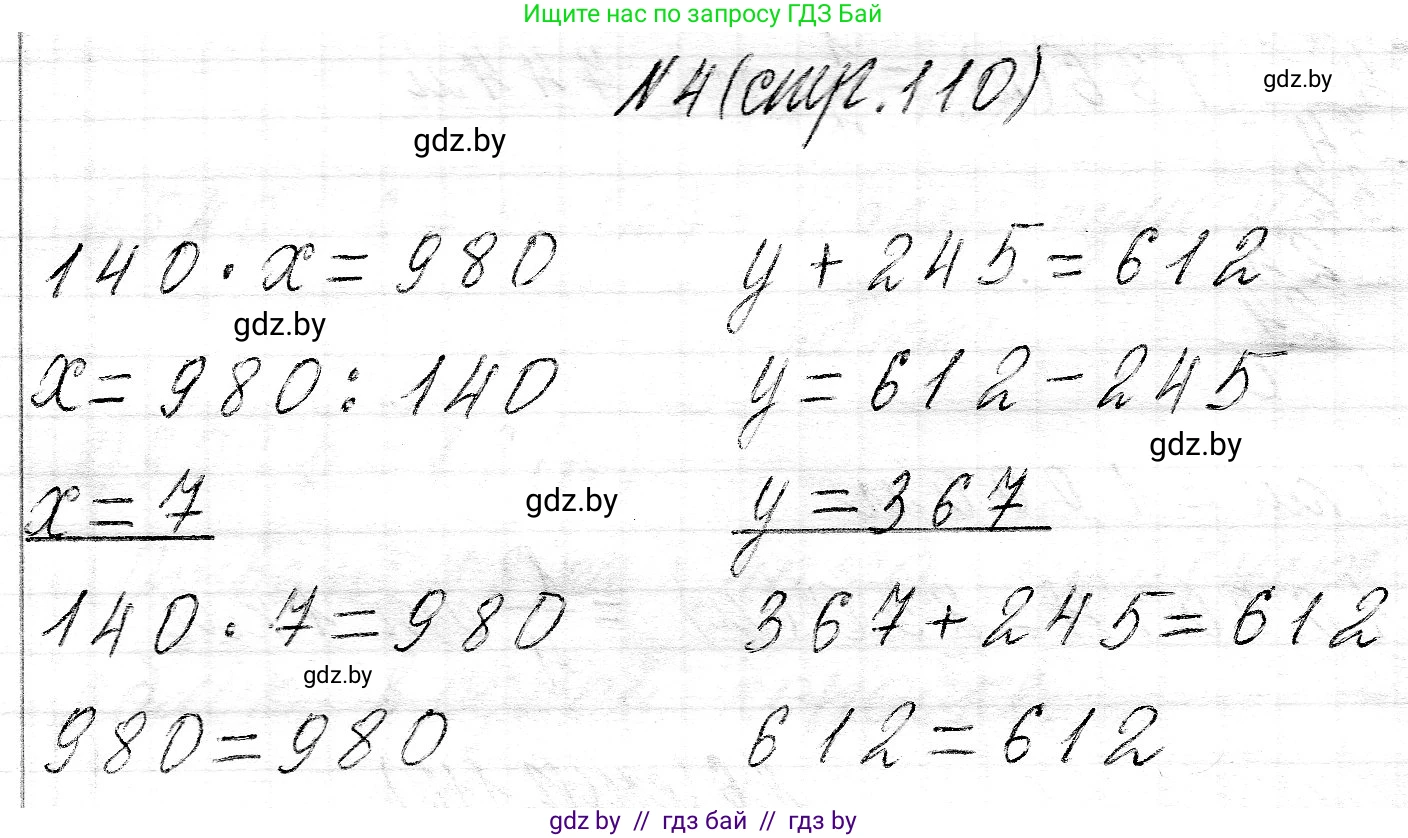 Ищите нас по запросу ГДЗ Бай
№4(стр.110)
gdz.by
gdz.by
140·x=980
y+245=612
gdz.by
x=980:140
y=612-245
gdz.by
x=7
gdz.by
y=367
140·7=980
367+245=612
gdz.by
980=980
612=612
gdz by // гдз бай // гдз by